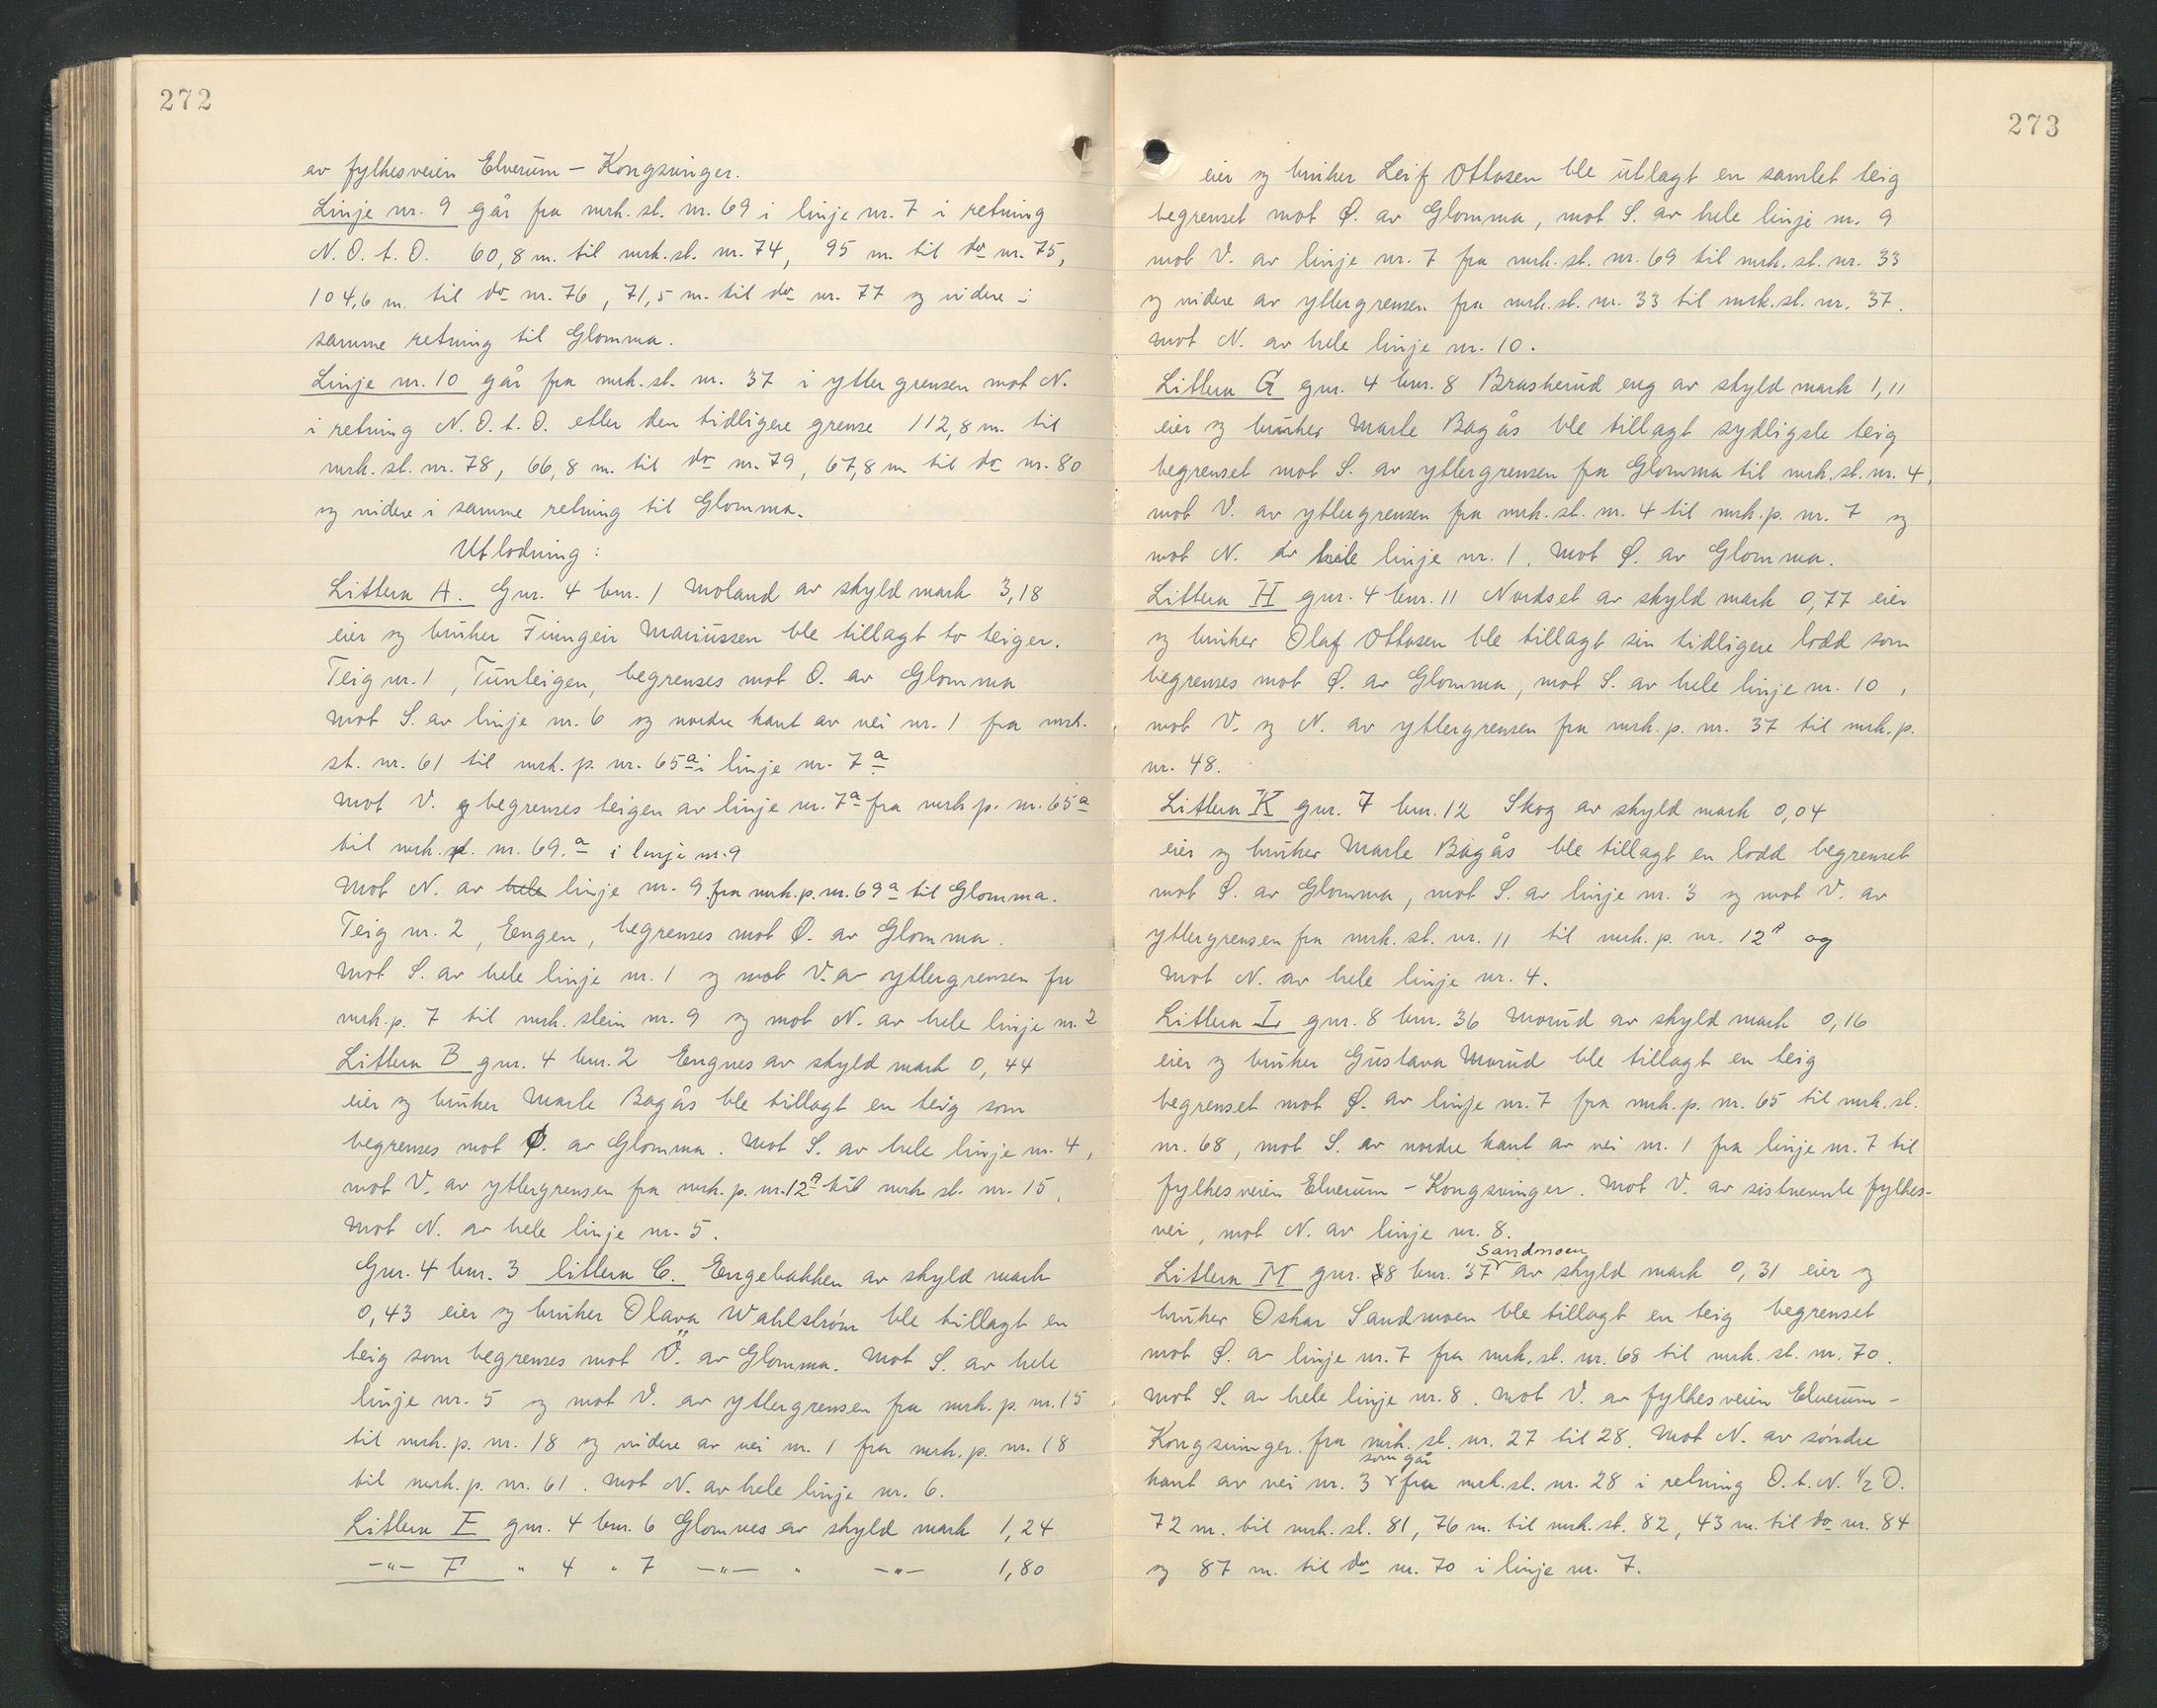 272
av fylkesveien Elverum – Kongsvinger.
Linje nr. 9 går fra mrk. st. nr. 69 i linje nr. 7 i retning
N. O. t. O. 60,8 m. til mrk. st. nr. 74, 95 m. til do nr. 75,
104,6 m. til do nr. 76, 71,5 m. til do nr. 77 og videre i
samme retning til Glomma.
Linje nr. 10 går fra mrk. st. nr. 37 i yttergrensen mot N.
i retning N. O. t. O. etter den tidligere grense 112,8 m. til
mrk. st. nr. 78, 66,8 m. til do nr. 79, 67,8 m til do nr. 80
og videre i samme retning til Glomma.
Utlodning:
Littera A. Gnr. 4 bnr. 1 Moland av skyld mark 3,18
eier og bruker Finngeir Mariussen ble tillagt to teiger.
Teig nr. 1, Tunteigen, begrenses mot O. av Glomma
Mot S. av linje nr. 6 og nordre kant av vei nr. 1 fra mrk.
st. nr. 61 til mrk. p. nr. 65a i linje nr. 7a
Mot V. begrenses teigen av linje nr. 7a fra mrk p. nr. 65a
til mrk. p. nr. 69.a i linje nr. 9
Mot N. av hele linje nr. 9 fra mrk. p. nr. 69a til Glomma.
Teig nr. 2, Engen, begrenses mot Ø. av Glomma.
Mot S. av hele linje nr. 1 og mot V. av yttergrensen fra
mrk. p. 7 til mrk. stein nr. 9 og mot N. av hele linje nr. 2
Littera B gnr. 4 bnr. 2 Engnes av skyld mark 0,44
eier og bruker Marle Bagås ble tillagt en teig som
begrenses mot Ø. av Glomma. Mot S. av hele linje nr. 4,
mot V. av yttergrensen fra mrk. p. nr. 12A til mrk st. nr. 15,
Mot N. av hele linje nr. 5.
Gnr. 4 bnr. 3 littera C. Engebakken av skyld mark
0,43 eier og bruker Olava Wahlstrøm ble tillagt en
teig som begrenses mot Ö. av Glomma. Mot S. av hele
linje nr. 5 og mot V. av yttergrensen fra mrk. p. nr. 15
til mrk. p. nr. 18 og videre av vei nr. 1 fra mrk. p. nr. 18
til mrk. p. nr. 61. Mot N. av hele linje nr. 6.
Littera E gnr. 4 bnr. 6 Glomnes av skyld mark 1,24
–"– F " 4 " 7 –"– " –"– 1,80
273
eier og bruker Leif Ottosen ble utlagt en samlet teig
begrenset mot Ø. av Glomma, mot S. av hele linje nr. 9
mot V. av linje nr. 7 fra mrk. st. nr. 69 til mrk. st. nr. 33
og videre av yttergrensen fra mrk. st. nr. 33 til mrk. st. nr. 37.
Mot N. av hele linje nr. 10.
Littera G gnr. 4 bnr. 8 Braskerud eng av skyld mark 1,11
eier og bruker Marle Bagås ble tillagt sydligste teig
begrenset mot S. av yttergrensen fra Glomma til mrk. st. nr. 4,
mot V. av yttergrensen fra mrk. st. nr. 4 til mrk. p. nr. 7 og
mot N. av hele linje nr. 1. Mot Ø. av Glomma.
Littera H gnr. 4 bnr. 11 Nordset av skyld mark 0,77 eier
og bruker Olaf Ottosen ble tillagt sin tidligere lodd som
begrenses mot Ø. av Glomma, mot S. av hele linje nr. 10,
mot V. og N. av yttergrensen fra mrk. p. nr. 37 til mrk. p.
nr. 48.
Littera K gnr. 7 bnr. 12 Skog av skyld mark 0,04
eier og bruker Marle Bagås ble tillagt en lodd begrenset
mot Ø. av Glomma, mot S. av linje nr. 3 og mot V. av
yttergrensen fra mrk. st. nr. 11 til mrk. p. nr. 12A og
Mot N. av hele linje nr. 4.
Littera L gnr. 8 bnr. 36 Morud av skyld mark 0,16
eier og bruker Gustava Morud ble tillagt en teig
begrenset mot Ø. av linje nr. 7 fra mrk. p. nr. 65 til mrk. st.
nr. 68, mot S. av nordre kant av vei nr. 1 fra linje nr. 7 til
fylkesveien Elverum – Kongsvinger. Mot V. av sistnevnte fylkes-
vei, mot N. av linje nr. 8.
Sandmoen
Littera M gnr. 8 bnr. 37 av skyld mark 0,31 eier og
bruker Oskar Sandmoen ble tillagt en teig begrenset
mot Ø. av linje nr. 7 fra mrk. st. nr. 68 til mrk. st. nr. 70.
Mot S. av hele linje nr. 8. Mot V. av fylkesveien Elverum –
Kongsvinger fra mrk. st. nr. 27 til 28. Mot N. av søndre
som går
kant av vei nr. 3 fra mrk. st. nr. 28 i retning O. t. N. 1/2 O.
72 m. til mrk. st. 81, 76 m. til mrk. st. 82, 43 m. til do nr. 84
og 87 m. til do nr. 70 i linje nr. 7.